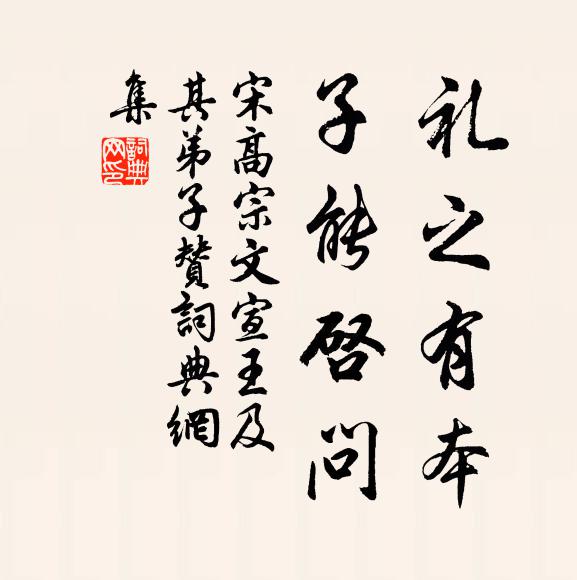 礼之有本
子能啓问
宋高宗文宣王及
其弟子赞詞典網
集
詞典
网印